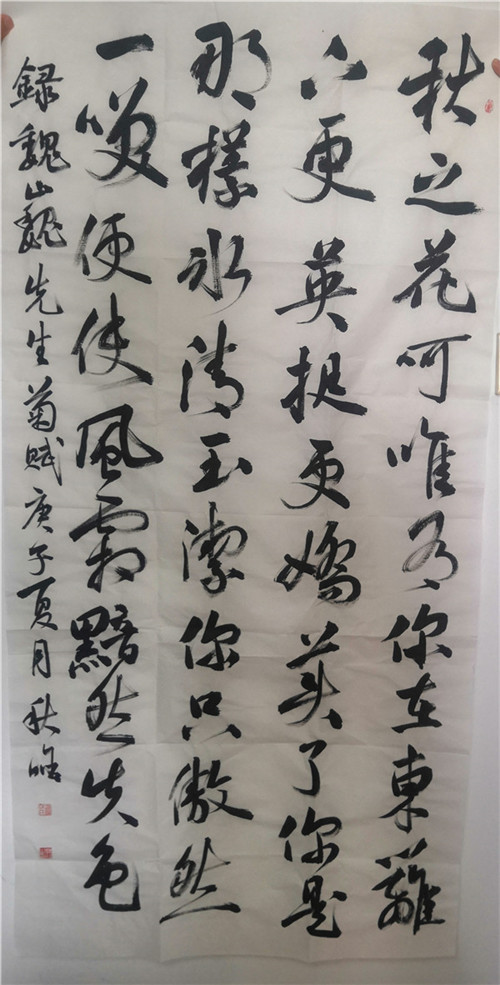 秋之花呵唯有你在東籬
下更英挺更嬌美了你是
那樣冰清玉潔你只傲然
一笑便使風霜黯然失色
録魏山魏先生菊賦庚子夏月秋皓